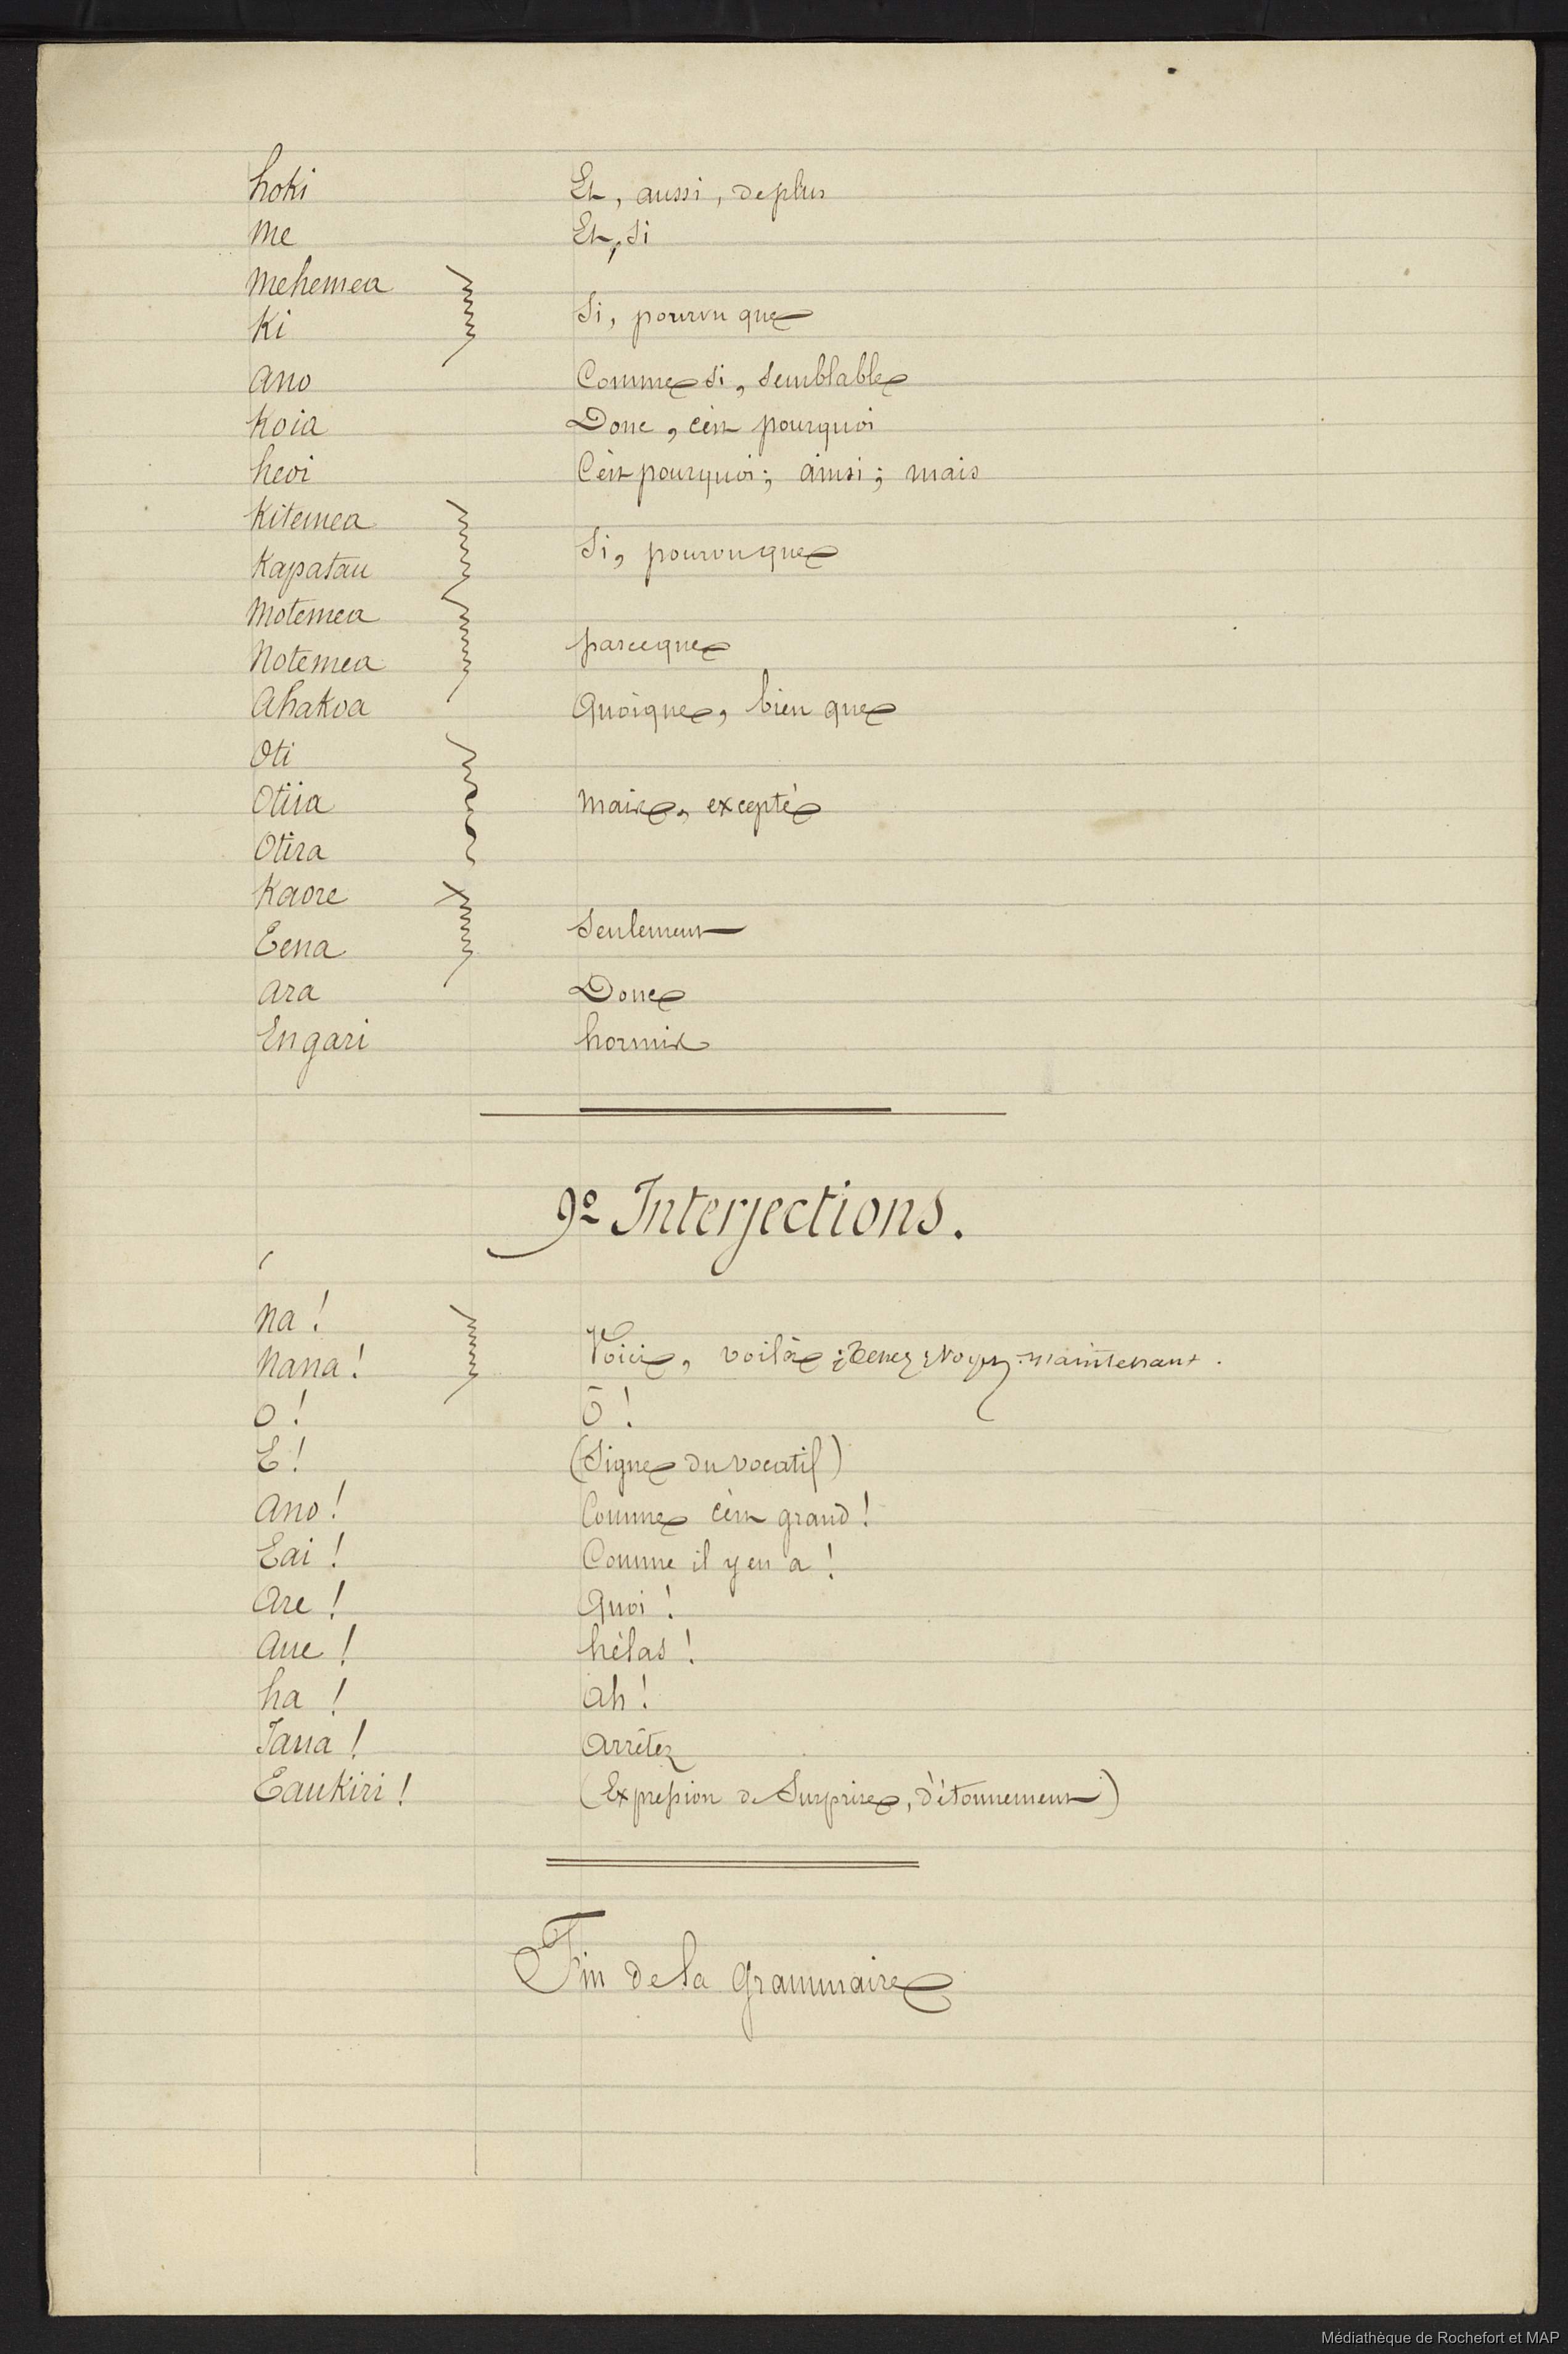 hoki Et, aussi, de plus
Me Et, Si
Mehemea
Si, pourvu que
Ki
Ano Comme si, Semblable
Koia Donc, c'est pourquoi
heoi C'est pourquoi; ainsi; mais
Kitemea
Si, pourvu que
Kapatau
Motemea
parceque
Notemea
Ahakoa Quoique, bien que
Oti
Otiia Mais, excepté
Otira
Kaore
Seulement
Eena
Ara Donc
Engari hormis
9º Interjections.
Na !
Nana ! Voici, voilà; Tenez; Voyez; maintenant.
O ! Ō !
E ! (Signe du vocatif)
Ano ! Comme c'est grand !
Eai ! Comme il y en a !
Are ! Quoi !
Aue ! hélas !
ha ! Ah !
Taua ! Arrêtez
Eaukiri ! (Expression de Surprise, d'étonnement)
Fin de la Grammaire
Médiathèque de Rochefort et MAP